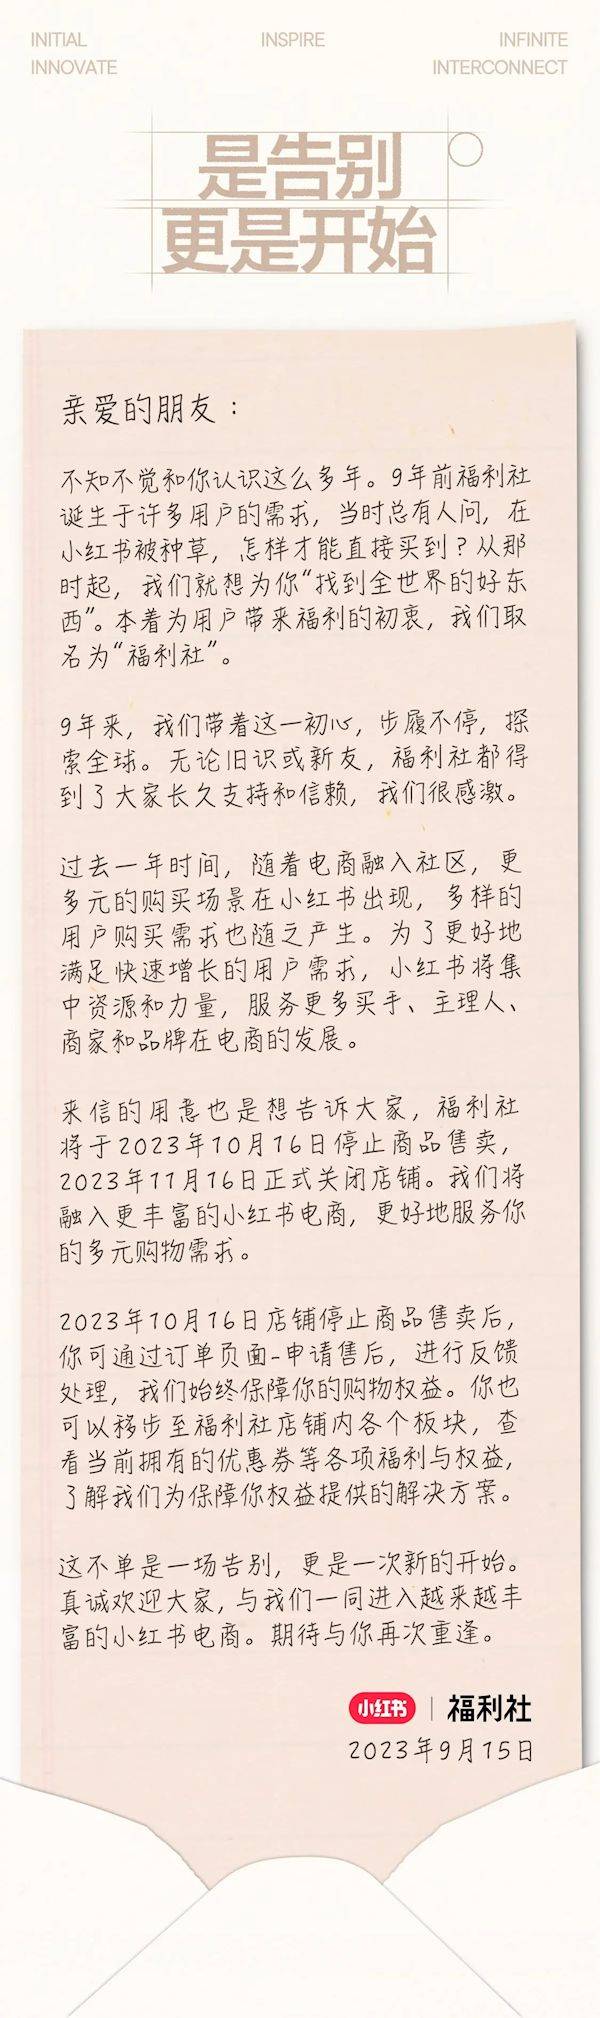 INITIAL INSPIRE INFINITE
INNOVATE INTERCONNECT
是告别
更是开始
亲爱的朋友：
不知不觉和你认识这么多年。9年前福利社
诞生于许多用户的需求，当时总有人问，在
小红书被种草，怎样才能直接买到？从那
时起，我们就想为你“找到全世界的好东
西”。本着为用户带来福利的初衷，我们取
名为“福利社”。
9年来，我们带着这一初心，步履不停，探
索全球。无论旧识或新友，福利社都得
到了大家长久支持和信赖，我们很感激。
过去一年时间，随着电商融入社区，更
多元的购买场景在小红书出现，多样的
用户购买需求也随之产生。为了更好地
满足快速增长的用户需求，小红书将集
中资源和力量，服务更多买手、主理人、
商家和品牌在电商的发展。
来信的用意也是想告诉大家，福利社
将于2023年10月16日停止商品售卖，
2023年11月16日正式关闭店铺。我们将
融入更丰富的小红书电商，更好地服务你
的多元购物需求。
2023年10月16日店铺停止商品售卖后，
你可通过订单页面-申请售后，进行反馈
处理，我们始终保障你的购物权益。你也
可以移步至福利社店铺内各个板块，查
看当前拥有的优惠券等各项福利与权益，
了解我们为保障你权益提供的解决方案。
这不单是一场告别，更是一次新的开始。
真诚欢迎大家，与我们一同进入越来越丰
富的小红书电商。期待与你再次重逢。
小红书｜福利社
2023年9月15日